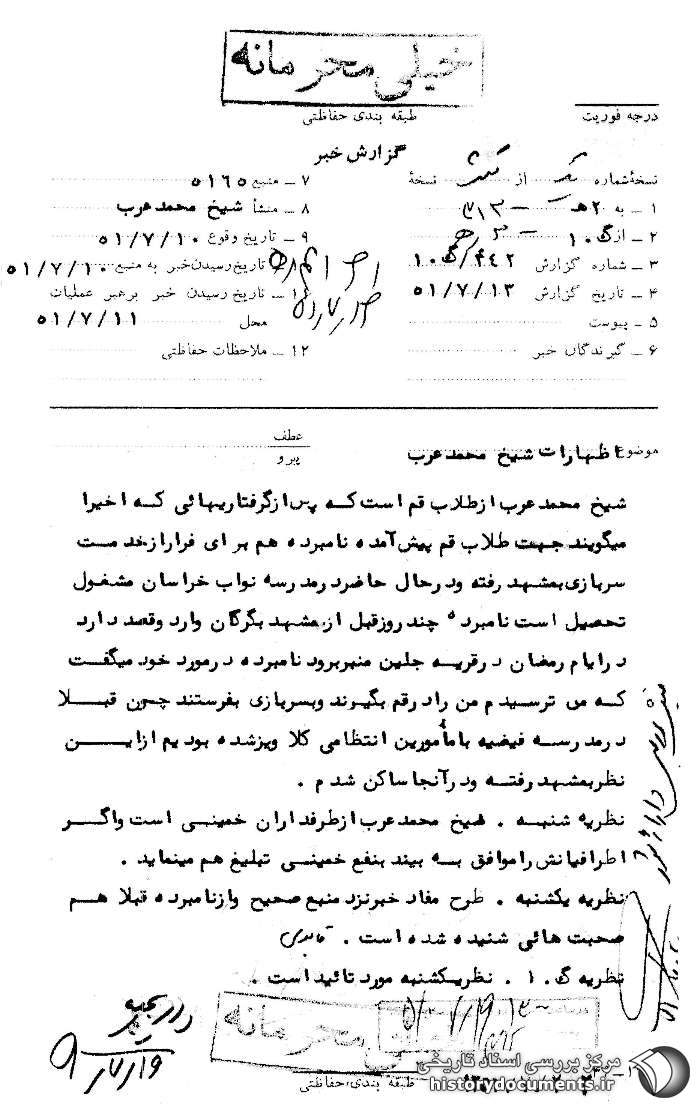 خیلی محرمانه
درجه فوریت
طبقه بندی حفاظتی
گزارش خبر
نسخهٔ شماره از نسخهٔ
۱ ـ به ۲هـ ۳۱۳
۲ ـ از گ ۱۰
۳ ـ شماره گزارش ۴۴۲/گ۱۰
۴ ـ تاریخ گزارش ۵۱/۷/۱۳
۵ ـ پیوست
۶ ـ گیرندگان خبر
۷ ـ منبع ۵۱۶۵
۸ ـ منشأ شیخ محمد عرب
۹ ـ تاریخ وقوع ۵۱/۷/۱۰
تاریخ رسیدن خبر به منبع ۵۱/۷/۱۰
تاریخ رسیدن خبر برهبر عملیات
محل ۵۱/۷/۱۱
۱۲ ـ ملاحظات حفاظتی
موضوع اظهارات شیخ محمد عرب
عطف
پیرو
شیخ محمد عرب از طلاب قم است که پس از گرفتاریهائی که اخیرا
میگویند جهت طلاب قم پیش آمده نامبرده هم برای فرار از خدمت
سربازی بمشهد رفته و در حال حاضر در مدرسه نواب خراسان مشغول
تحصیل است نامبرده چند روز قبل از مشهد بگرگان وارد وقصد دارد
در ایام رمضان در قریه جلین منبر برود نامبرده در مورد خود میگفت
که من ترسیدم من را در قم بگیرند وبسربازی بفرستند چون قبلا
در مدرسه فیضیه با مأمورین انتظامی گلاویز شده بودیم از این
نظر بمشهد رفته ودر آنجا ساکن شدم .
نظریه شنبه . شیخ محمد عرب از طرفداران خمینی است واگر
اطرافیانش را موافق به بیند بنفع خمینی تبلیغ هم مینماید .
نظریه یکشنبه . طرح مفاد خبر نزد منبع صحیح واز نامبرده قبلا هم
صحبت هائی شنیده شده است .
نظریه گ . ۱ . نظر یکشنبه مورد تائید است .
خیلی محرمانه
طبقه بندی حفاظتی
مرکز بررسی اسناد تاریخی
historydocuments.ir